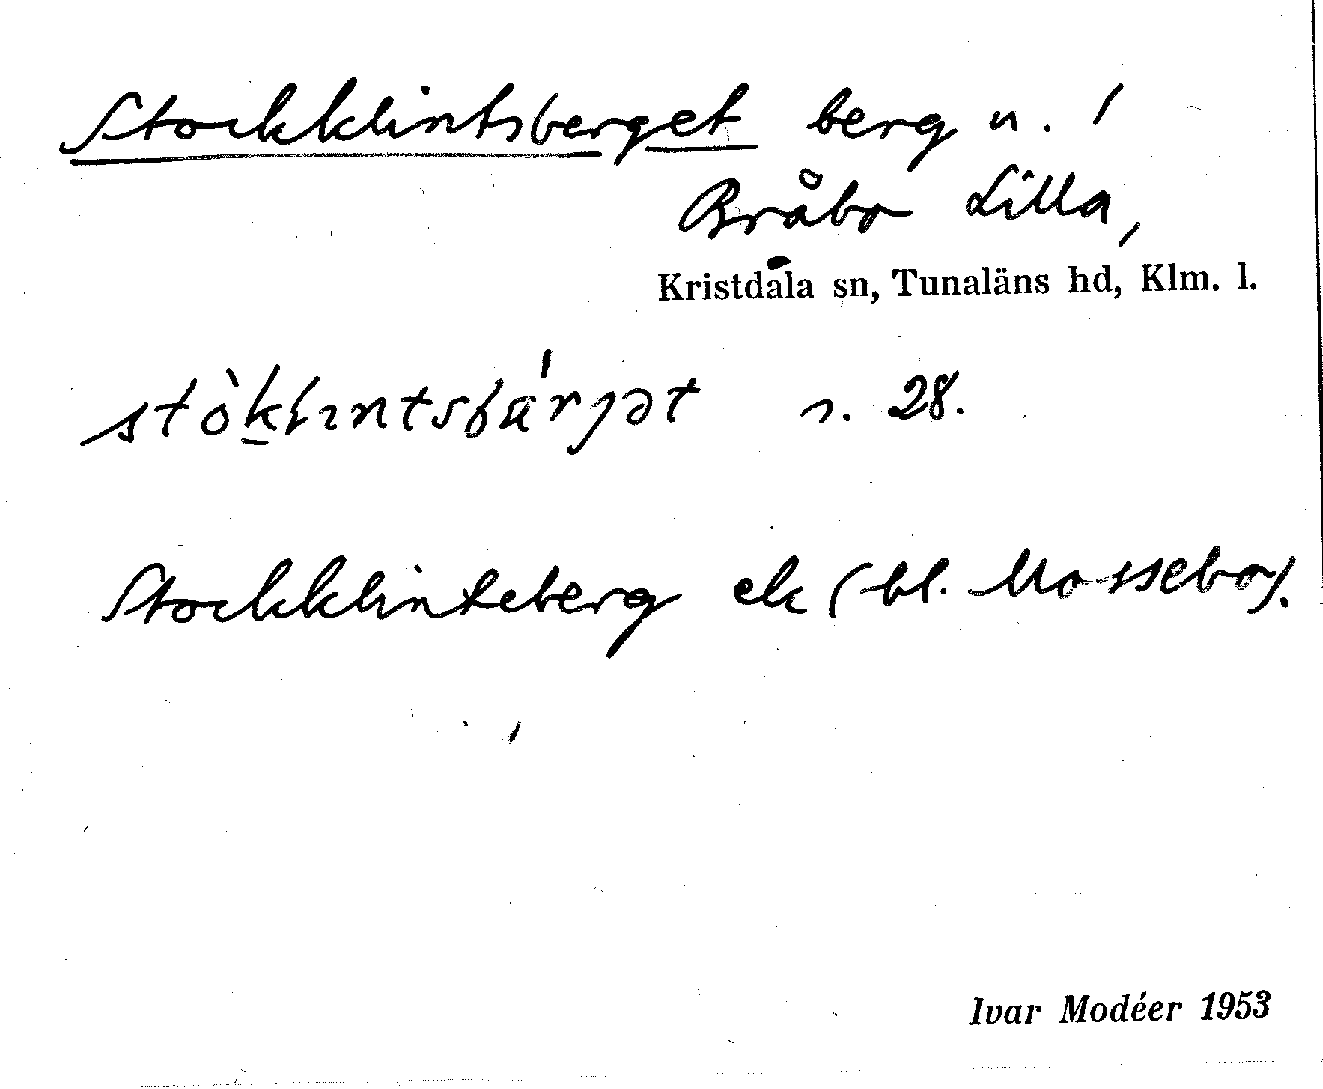 Stockklintsberget berg n. /
Bråbo Lilla,
Kristdala sn, Tunaläns hd, Klm. l.
stòkl̥ıntsbá'rjət s. 28.
Stockklinteberg ek (bl. Mossebo).
Ivar Modéer 1953